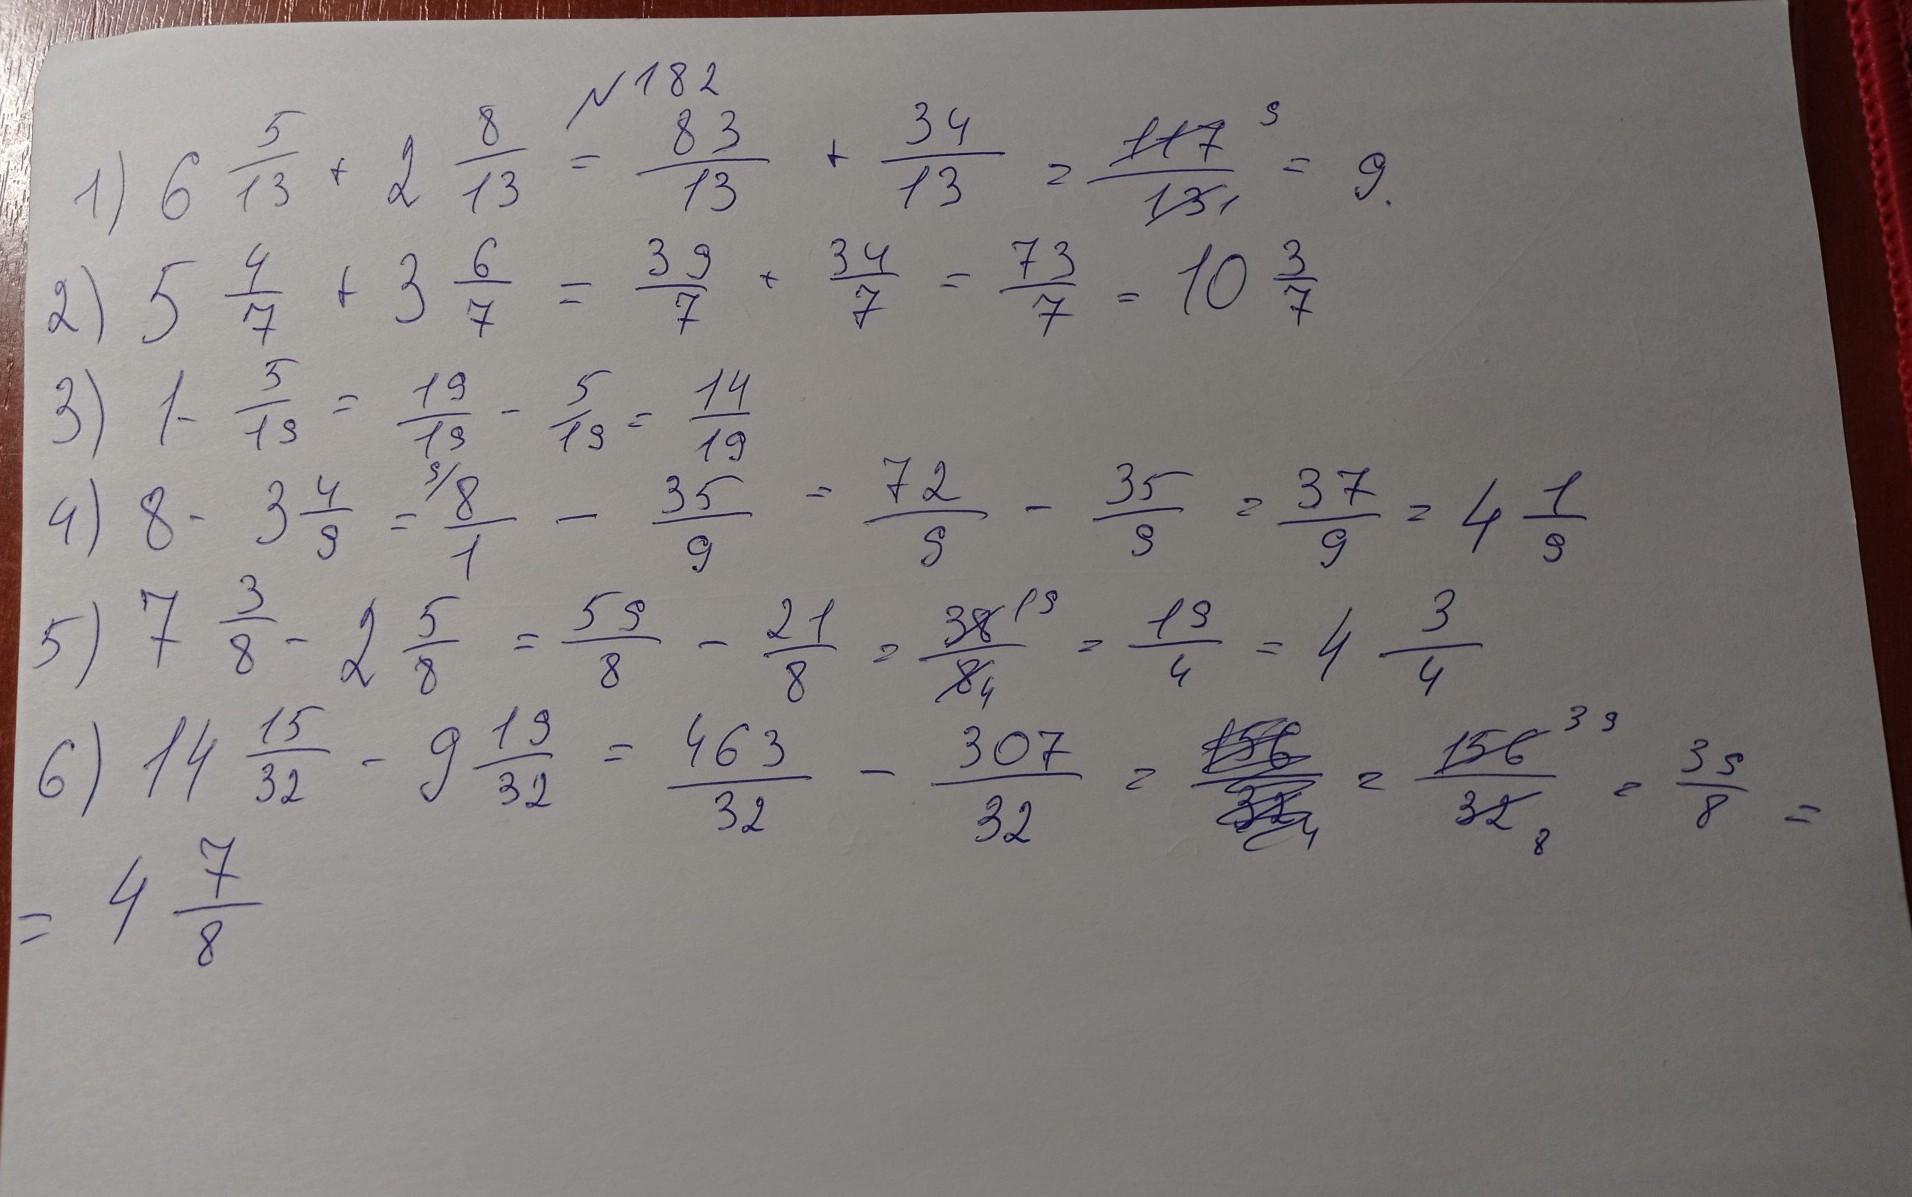 №182
1) 6 5/13 + 2 8/13 = 83/13 + 34/13 = 117/13 9/1 = 9.
2) 5 4/7 + 3 6/7 = 39/7 + 34/7 = 73/7 = 10 3/7
3) 1 - 5/19 = 19/19 - 5/19 = 14/19
4) 8 - 3 4/9 = 9/ 8/1 - 35/9 = 72/9 - 35/9 = 37/9 = 4 1/9
5) 7 3/8 - 2 5/8 = 59/8 - 21/8 = 38/8 19/4 = 19/4 = 4 3/4
6) 14 15/32 - 9 19/32 = 463/32 - 307/32 = 156/32 4 = 156/32 39/8 = 39/8 =
= 4 7/8